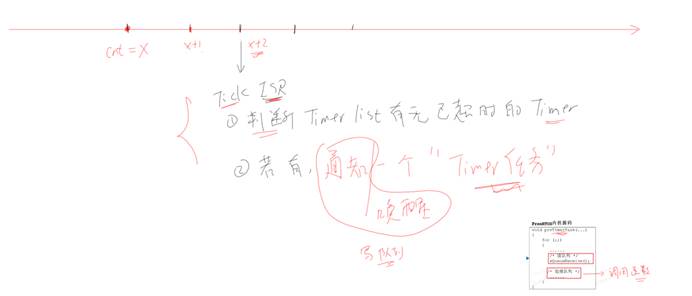 cnt = X
x+1
x+2
Tick ISR
① 判断 Timer list 有无已超时的 Timer
② 若有,通知一个 "Timer任务"
唤醒
写队列
FreeRTOS内核源码
for (;;)
/* 读队列 */
/* 处理队列 */
调用函数